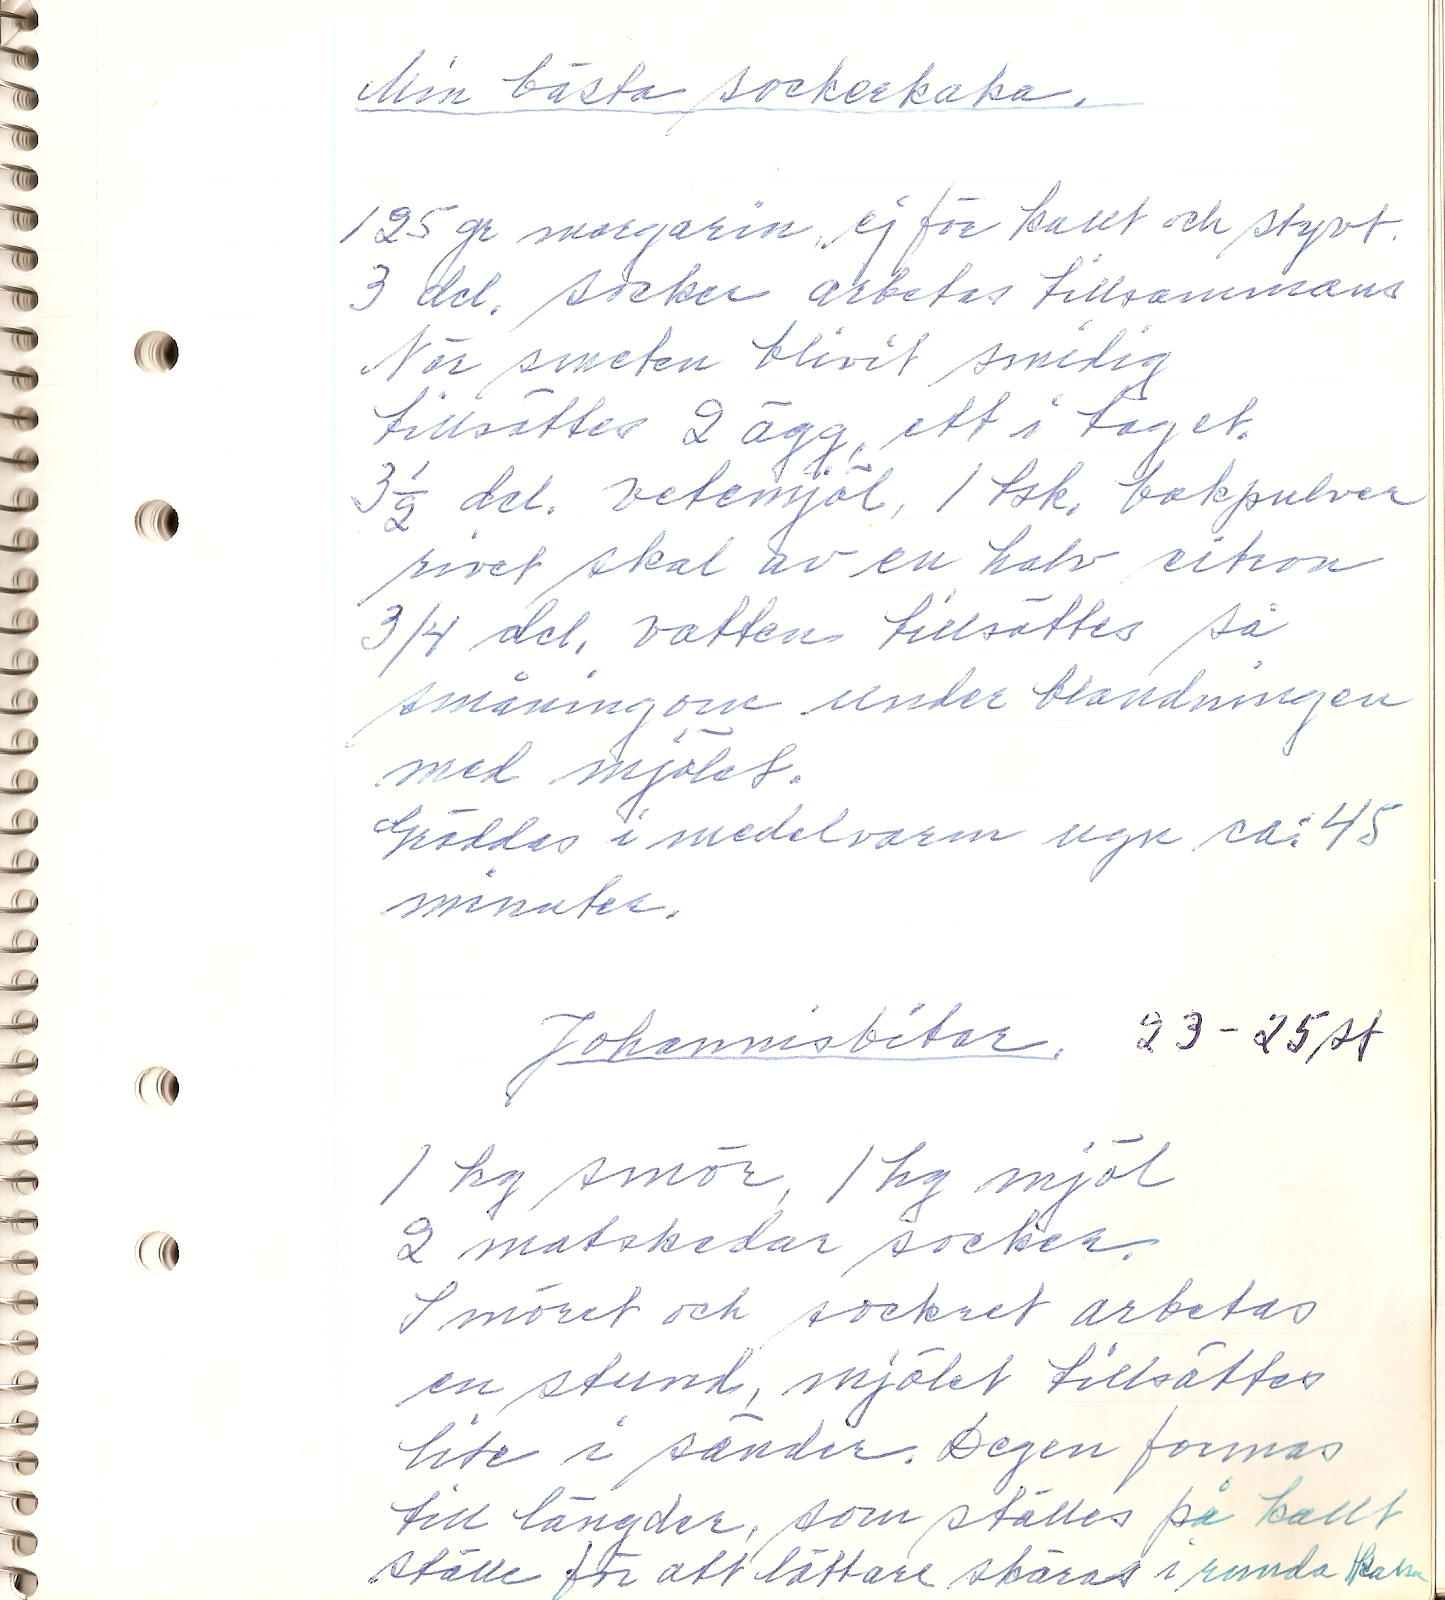 Min bästa sockerkaka.
125 gr margarin, ej för kallt och styvt.
3 dcl. socker arbetas tillsammans
När smeten blivit smidig
tillsättes 2 ägg, ett i taget.
3 1/2 dcl. vetemjöl, 1 tsk. bakpulver
rivet skal av en halv citron
3/4 dcl. vatten tillsättes så
småningom under blandningen
med mjölet.
Gräddas i medelvarm ugn ca: 45
minuter.
Johannisbitar. 23-25 st
1 hg smör, 1 hg mjöl
2 matskedar socker.
Smöret och sockret arbetas
en stund, mjölet tillsättes
lite i sänder. Degen formas
till längder, som ställes på kallt
ställe för att lättare skäras i runda